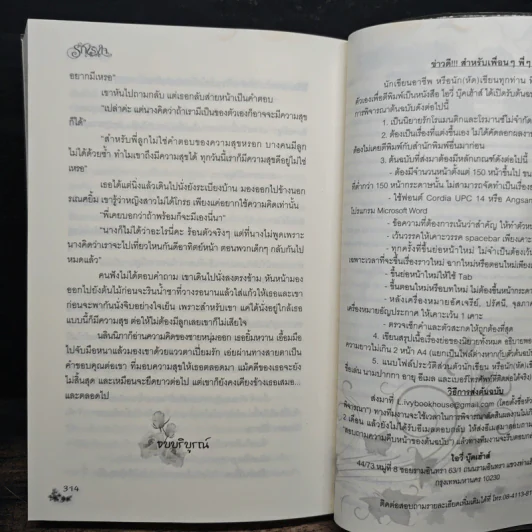 อยากมีเหรอ"
เขาหันไปถามกลับ แต่เธอกลับส่ายหน้าเป็นคำตอบ
"เปล่าค่ะ แต่นางคิดว่าถ้าเรามีเป็นของตัวเองก็อาจจะมีความสุข
ก็ได้"
"สำหรับพี่ลูกไม่ใช่คำตอบของความสุขหรอก บางคนมีลูก
ไม่ได้ด้วยซ้ำ ทำไมเขาถึงมีความสุขได้ ทุกวันนี้เราก็มีความสุขดีอยู่ไม่ใช่
เหรอ"
เธอได้แต่นิ่งแล้วเดินไปนั่งยังระเบียงบ้าน มองออกไปข้างนอก
รณคยิ้ม เขารู้ว่าหญิงสาวไม่ได้โกรธ เพียงแค่อยากใช้ความคิดเท่านั้น
"พี่เคยบอกว่าถ้าพร้อมก็จะมีเองนี่นา"
"นางก็ไม่ได้ว่าอะไรนี่คะ ร้อนตัวจริงๆ แต่ที่นางไม่พูดเพราะ
นางคิดว่าเราจะไปเที่ยวไหนกันดีอาทิตย์หน้า ตอนพวกเด็กๆ กลับกันไป
หมดแล้ว"
คนฟังไม่ได้ตอบคำถาม เขาเดินไปนั่งลงตรงข้าม หันหน้ามอง
ออกไปยังต้นไม้ก่อนจะรินน้ำชาที่วางรอนานแล้วใส่แก้วให้เธอและเขา
ก่อนจะพากันนั่งจิบอย่างใจเย็น เพราะสำหรับเขา แค่ได้นั่งอยู่ใกล้เธอ
แบบนี้ก็มีความสุข ต่อให้ไม่ต้องมีลูกเลยเขาก็ไม่เสียใจ
นลินนิภาก็อ่านความคิดของชายหนุ่มออก เธอยิ้มหวาน เอื้อมมือ
ไปจับมือหนาแล้วมองเขาด้วยแววตาเปี่ยมรัก เอ่ยผ่านทางสายตาเป็น
คำขอบคุณต่อเขา ที่มอบความสุขให้เธอตลอดมา แม้คดีของเธอจะยัง
ไม่สิ้นสุด และเหมือนจะยืดยาวต่อไป แต่เขาก็ยังคงเคียงข้างเธอเสมอ...
และตลอดไป
จบบริบูรณ์
314
ข่าวดี!!! สำหรับเพื่อนๆ พี่ๆ
นักเขียนอาชีพ หรือนัก(หัด)เขียนทุกท่าน
ตัวเองเพื่อตีพิมพ์เป็นหนังสือ ไอวี่ บุ๊คเฮ้าส์ ได้เปิดรับต้นฉบับ
การพิจารณาต้นฉบับดังต่อไปนี้
1. เป็นนิยายรักโรแมนติกและโรมานซ์ไม่จำกัด
2. ต้องเป็นเรื่องที่แต่งขึ้นเอง ไม่ได้คัดลอกผลงาน
ต้องไม่เคยตีพิมพ์กับสำนักพิมพ์อื่นมาก่อน
3. ต้นฉบับที่ส่งมาต้องมีหลักเกณฑ์ดังต่อไปนี้
- ต้องมีจำนวนหน้าตั้งแต่ 150 หน้าขึ้นไป
ที่ต่ำกว่า 150 หน้ากระดาษนั้น ไม่สามารถจัดทำเป็น
- ใช้ฟอนต์ Cordia UPC 14 หรือ Angsan
โปรแกรม Microsoft Word
- ข้อความที่ต้องการเน้นว่าสำคัญ ให้ทำตัว
- เว้นวรรคให้เคาะวรรค spacebar เพียง
- ทุกครั้งที่ขึ้นย่อหน้าใหม่ ไม่จำเป็นต้องเว้น
- ขึ้นย่อหน้าใหม่ให้ใช้ Tab
- ขึ้นตอนใหม่หรือบทใหม่ ไม่ต้องขึ้นหน้ากระดาษ
- หลังเครื่องหมายอัศเจรีย์, ปรัศนี, จุลภาค
เครื่องหมายอัญประกาศ ให้เคาะเว้น 1 เคาะ
- ตรวจเช็กคำและตัวสะกดให้ถูกต้องที่สุด
4. เขียนสรุปเนื้อเรื่องย่อของนิยายทั้งหมด
ความยาวไม่เกิน 2 หน้า A4
5. แนบไฟล์ประวัติส่วนตัวนักเขียน
ชื่อเล่น นามปากกา อายุ อีเมล และเบอร์โทรศัพท์ที่ติดต่อได้
วิธีการส่งต้นฉบับ
ไอวี่ บุ๊คเฮ้าส์
44/73 หมู่ที่ 8 ซอยรามอินทรา 63/1 ถนนรามอินทรา
กรุงเทพมหานคร 10230
ติดต่อสอบถามรายละเอียดเพิ่มเติมได้ที่